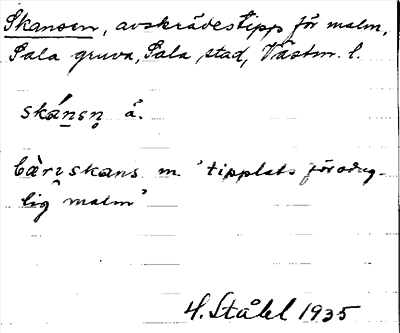 Skansen, avskrädestipp för malm,
Sala gruva, Sala stad, Västm. l.
skánsn̥ å.
bàrı̭skans m. 'tipplats för odug-
lig malm'
H. Ståhl 1935